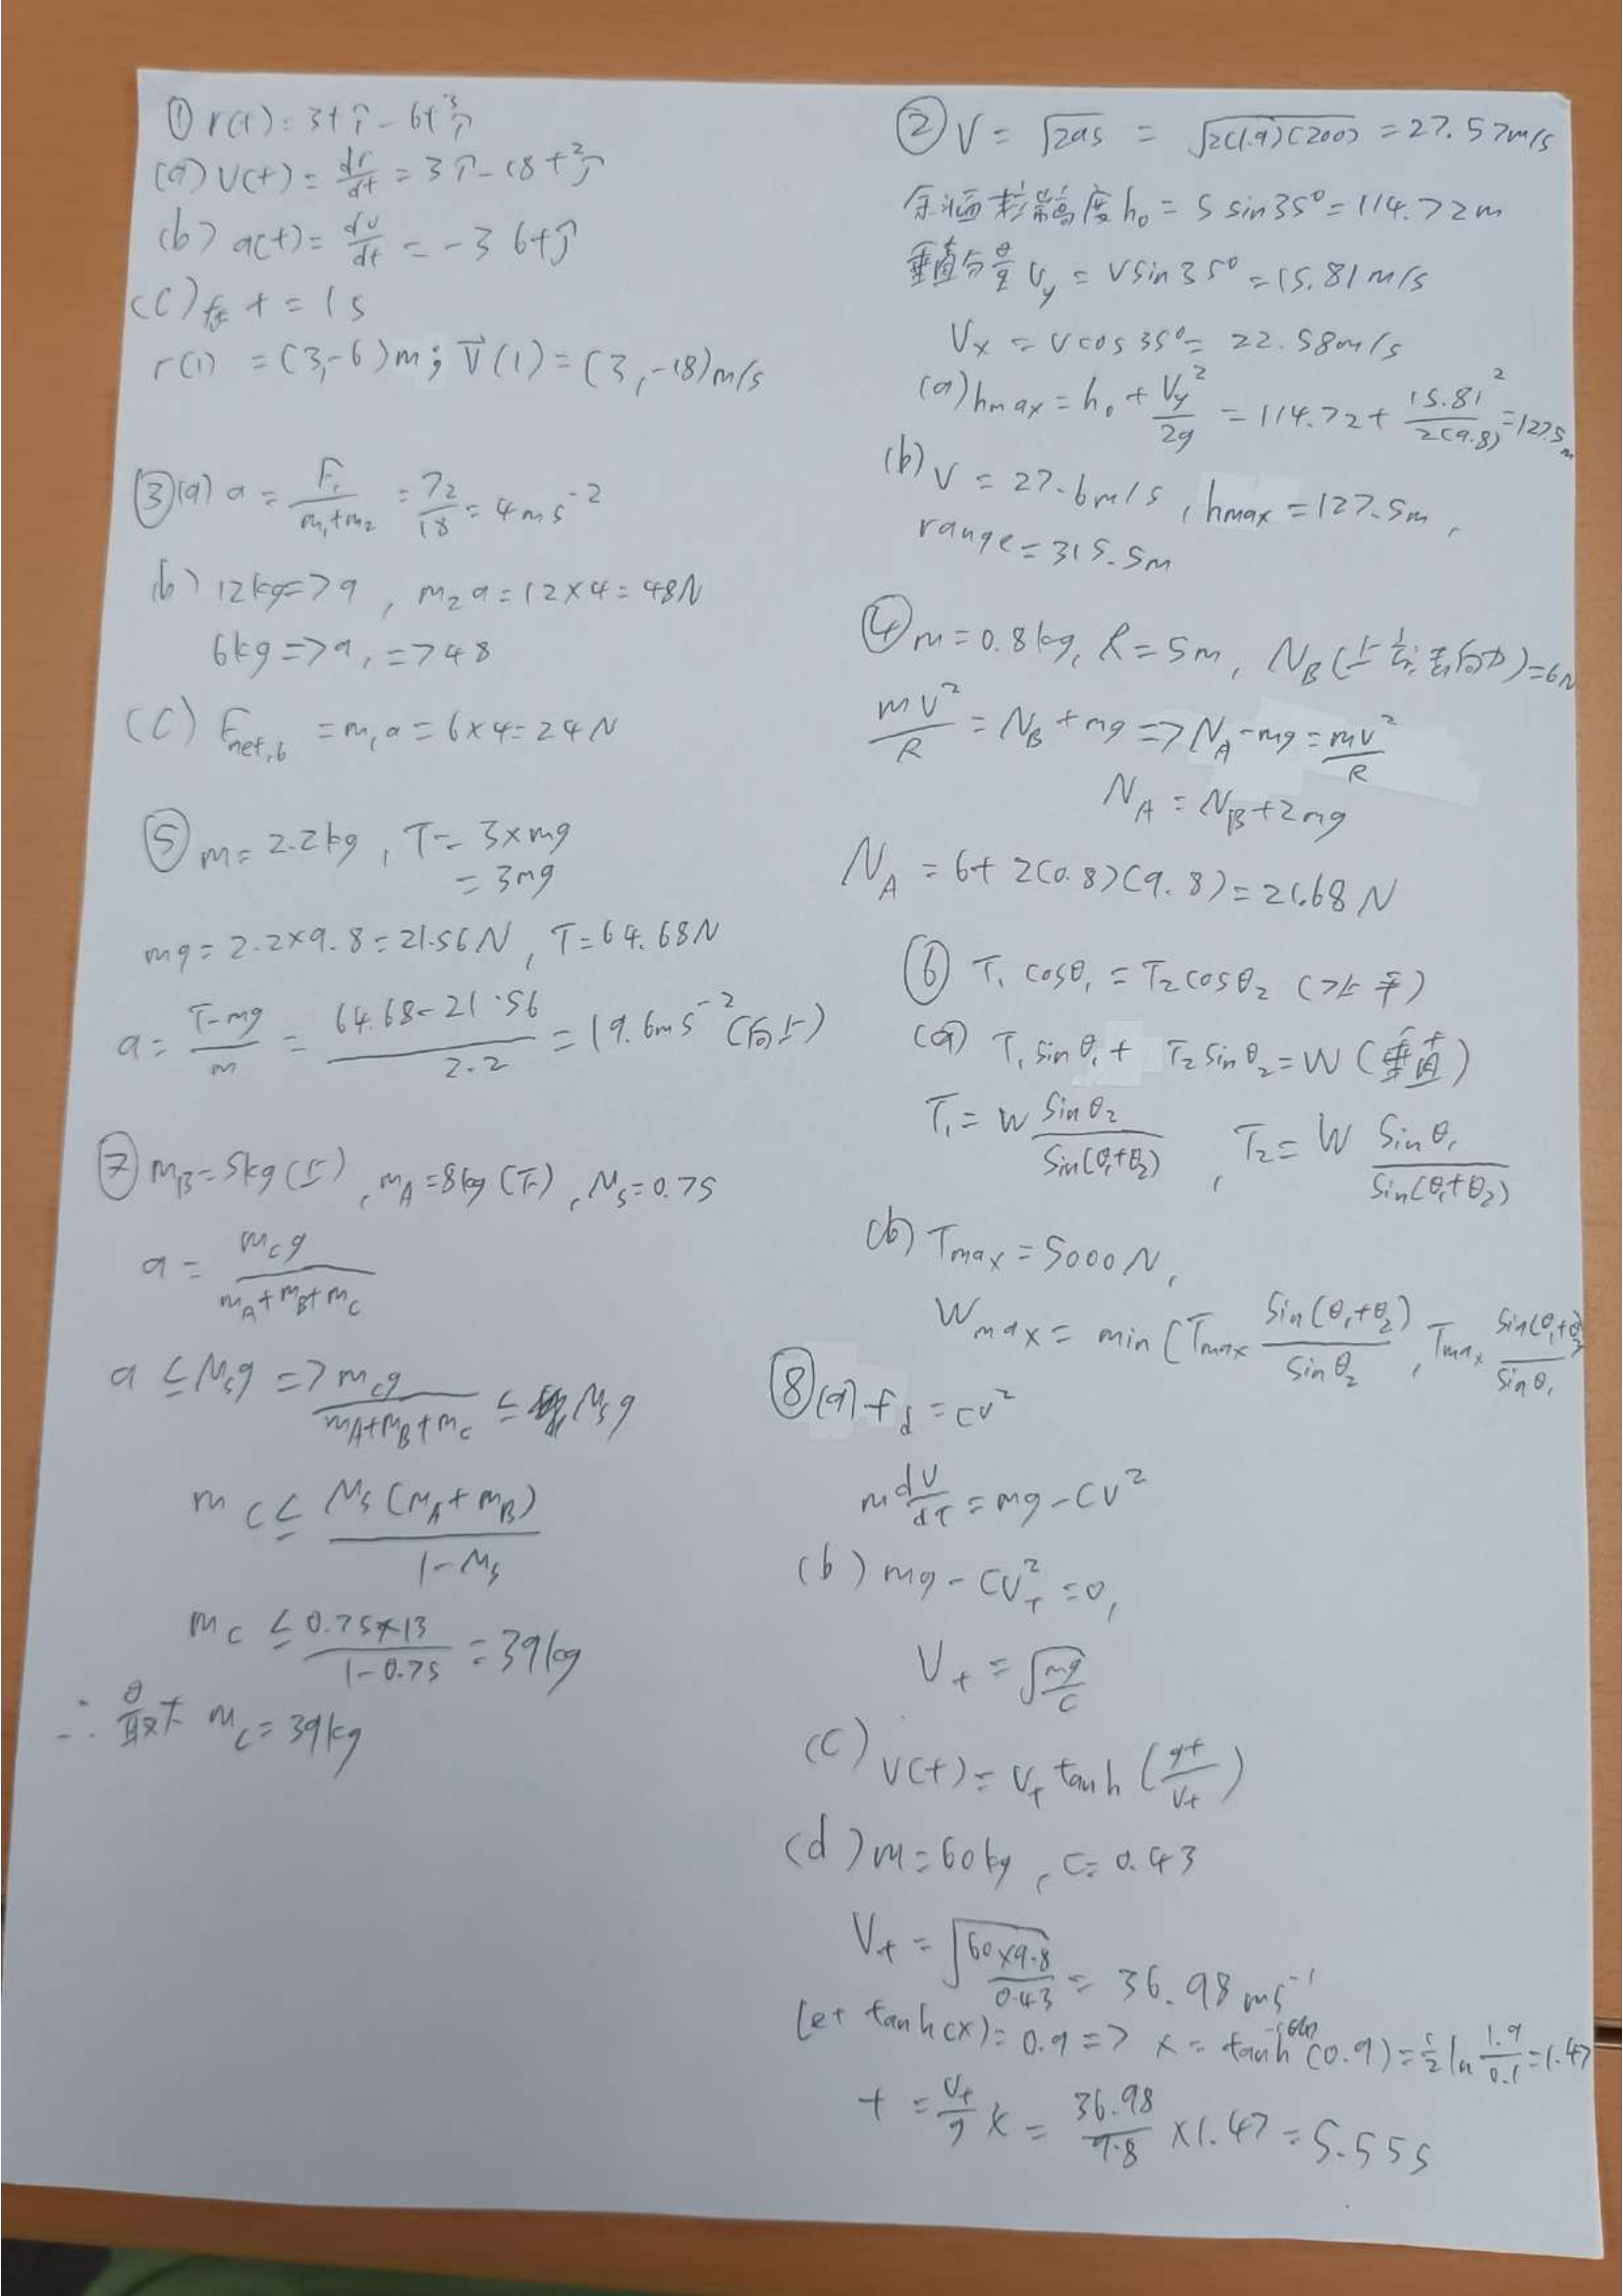 ① r(t) = 3t î - 6t³ ĵ
(a) v(t) = dr/dt = 3 î - 18 t² ĵ
(b) a(t) = dv/dt = -36t ĵ
(c) 在 t = 1s
r(1) = (3,-6)m; v⃗(1) = (3,-18)m/s
③ (a) a = F₁/(m₁+m₂) = 72/18 = 4ms⁻²
(b) 12kg => a, m₂a = 12×4 = 48N
6kg => a, => 48
(c) Fnet,6 = m₁a = 6×4 = 24N
⑤ m = 2.2kg, T = 3×mg
= 3mg
mg = 2.2×9.8 = 21.56N, T = 64.68N
a = (T-mg)/m = (64.68-21.56)/2.2 = 19.6ms⁻² (向上)
⑦ mB = 5kg (上), mA = 8kg (下), Ms = 0.75
a = mcg/(mA+mB+mc)
a ≤ Msg => mcg/(mA+mB+mc) ≤ Msg
mc ≤ Ms(mA+mB)/(1-Ms)
mc ≤ 0.75×13/(1-0.75) = 39kg
∴ 最大 mc = 39kg
② V = √2as = √2(1.9)(200) = 27.57m/s
高度 h₀ = S sin35° = 114.72m
垂直分量 Vy = V sin35° = 15.81 m/s
Vx = V cos35° = 22.58m/s
(a) hmax = h₀ + Vy²/2g = 114.72 + 15.81²/2(9.8) = 127.5m
(b) V = 27.6m/s, hmax = 127.5m,
range = 315.5m
④ m = 0.8kg, R = 5m, NB ( ) = 6N
mV²/R = NB + mg => NA - mg = mv²/R
NA = NB + 2mg
NA = 6 + 2(0.8)(9.8) = 21.68N
⑥ T₁ cosθ₁ = T₂ cosθ₂ (水平)
(a) T₁ sinθ₁ + T₂ sinθ₂ = W (垂直)
T₁ = W sinθ₂/sin(θ₁+θ₂), T₂ = W sinθ₁/sin(θ₁+θ₂)
(b) Tmax = 5000N,
Wmax = min (Tmax sin(θ₁+θ₂)/sinθ₂, Tmax sin(θ₁+θ₂)/sinθ₁
⑧ (a) fd = cv²
m dV/dt = mg - CV²
(b) mg - CVt² = 0,
Vt = √(mg/c)
(c) V(t) = Vt tanh (gt/Vt)
(d) m = 60kg, C = 0.43
Vt = √(60×9.8/0.43) = 36.98 ms⁻¹
let tanh(x) = 0.9 => x = tanh⁻¹(0.9) = 1/2 ln 1.9/0.1 = 1.47
t = Vt/g x = 36.98/9.8 ×1.47 = 5.55s